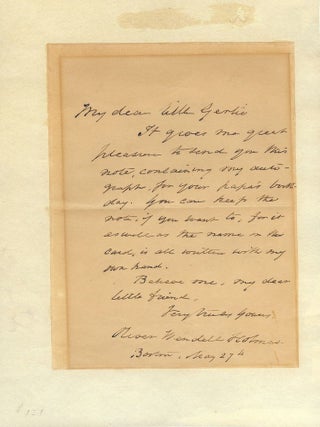 My dear little Gertie
It gives me great
pleasure to send you this
note, containing my auto-
graph, for your papa's birth-
day. You can keep the
note, if you want to, for it
as well as the name on the
card, is all written with my
own hand.
Believe me, my dear
little friend,
Very truly yours
Oliver Wendell Holmes.
Boston, May 27th